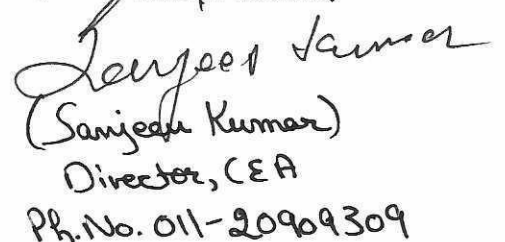 Sanjeev Kumar
(Sanjeev Kumar)
Director, CEA
Ph. No. 011-20909309